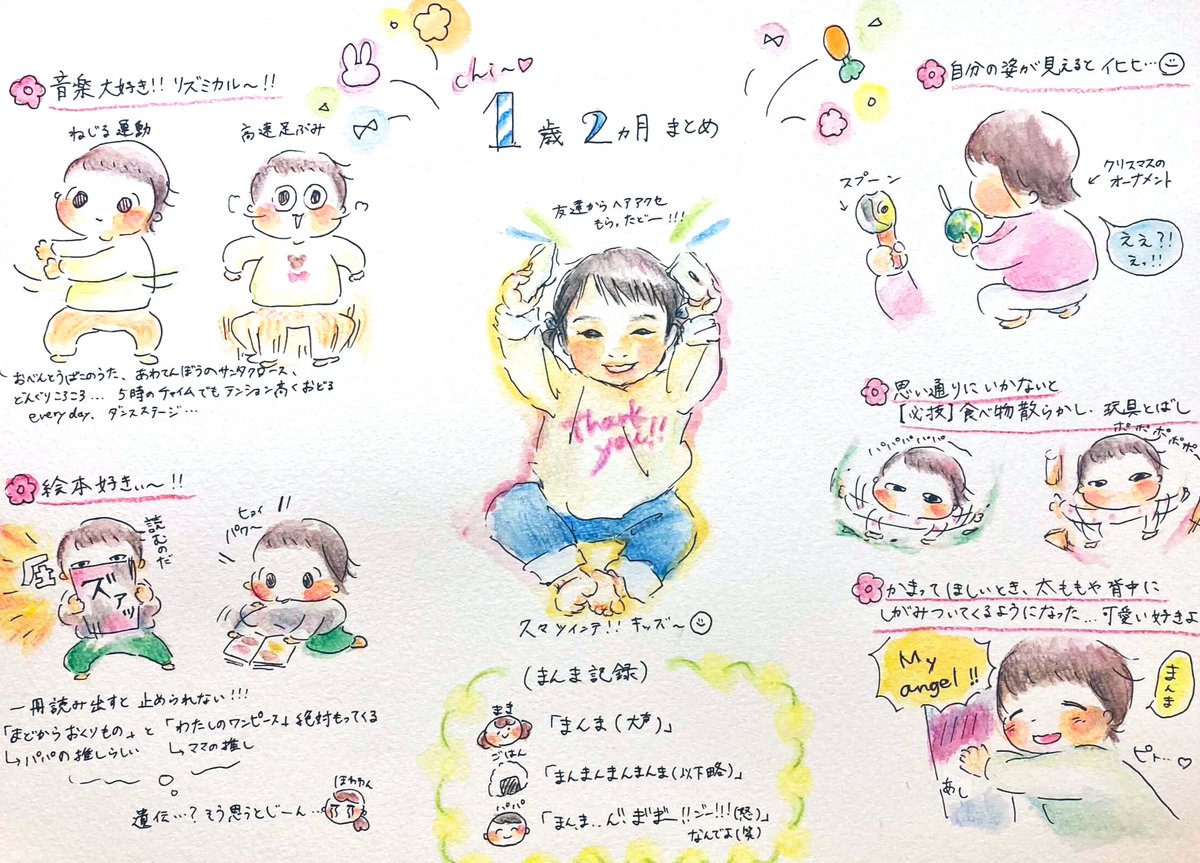 chi〜♡
1歳2ヵ月 まとめ
音楽大好き!! リズミカル〜!!
ねじる運動
高速足ぶみ
おべんとうばこのうた、あわてんぼうのサンタクロース、
どんぐりころころ… 5時のチャイムでもテンション高くおどる
every day、ダンスステージ…
絵本好きぃ〜!!
読むのだ
圧
ズアッ
ヒョイ
パワ〜
一冊読み出すと止められない!!!
「まどからおくりもの」と「わたしのワンピース」絶対もってくる
↳パパの推しらしい ↳ママの推し
遺伝…?そう思うとじーん…
ほわわん
友達からヘアアクセ
もらったどー!!!
Thank
you!!
スマツインテ!! キッズ〜
(まんま記録)
まき
「まんま(大声)」
ごはん
「まんまんまんまんま(以下略)」
パパ
「まんま‥ん゛ま゛ま゛ー!!ジー!!!(怒)」
なんでよ(笑)
自分の姿が見えるとイヒヒ…
スプーン
クリスマスの
オーナメント
ええ?!
えっ!!
思い通りにいかないと
【必技】食べ物散らかし、玩具とばし
パパパパパパ
ポポポポポ
かまってほしいとき、太ももや背中に
しがみついてくるようになった…可愛い好きよ
My
angel!!
まんま
ピト…♡
あし